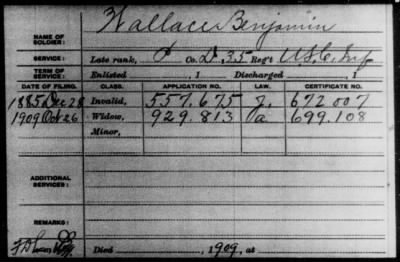 Wallace Benjamin
NAME OF SOLDIER:
SERVICE: Late rank, P Co. D, 35 Reg't U.S.C. Inf
TERM OF SERVICE: Enlisted , 1 Discharged , 1
DATE OF FILING. CLASS. APPLICATION NO. LAW. CERTIFICATE NO.
1885 Dec 28 Invalid, 557.675 J. 672007
1909 Oct 26 Widow, 929.813 a 699.108
Minor,
ADDITIONAL SERVICES:
REMARKS:
Died , 1909, at